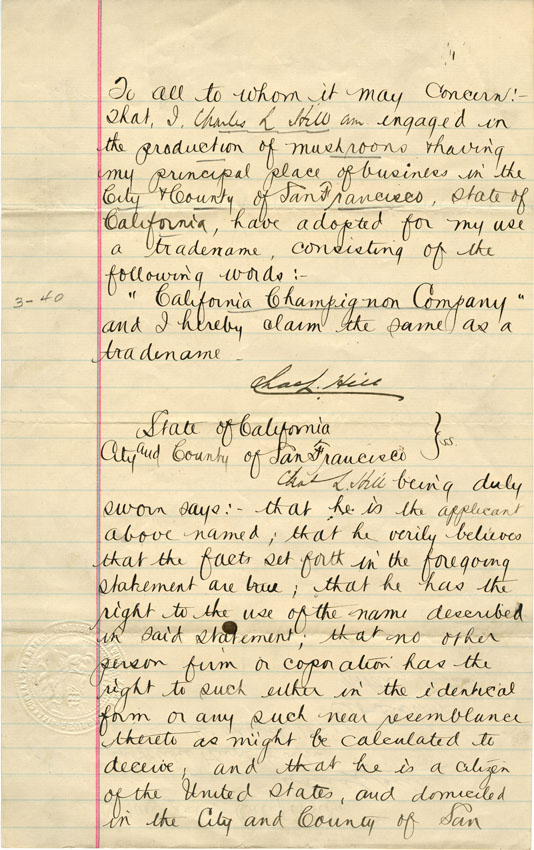 To all to whom it may Concern:-
That, I, Charles L Hill am engaged in
the production of mushrooms & having
my principal place of business in the
City & County of San Francisco, State of
California, have adopted for my use
a tradename, consisting of the
following words:-
3-40
"California Champignon Company"
and I hereby claim the same as a
tradename
Chas L. Hill
State of California
City and County of San Francisco } ss.
Chas L. Hill being duly
sworn says:- that he is the applicant
above named; that he verily believes
that the facts set forth in the foregoing
statement are true; that he has the
right to the use of the name described
in said statement; that no other
person firm or coporation has the
right to such either in the identical
form or any such near resemblance
thereto as might be calculated to
deceive, and that he is a citizen
of the United States, and domiciled
in the City and County of San